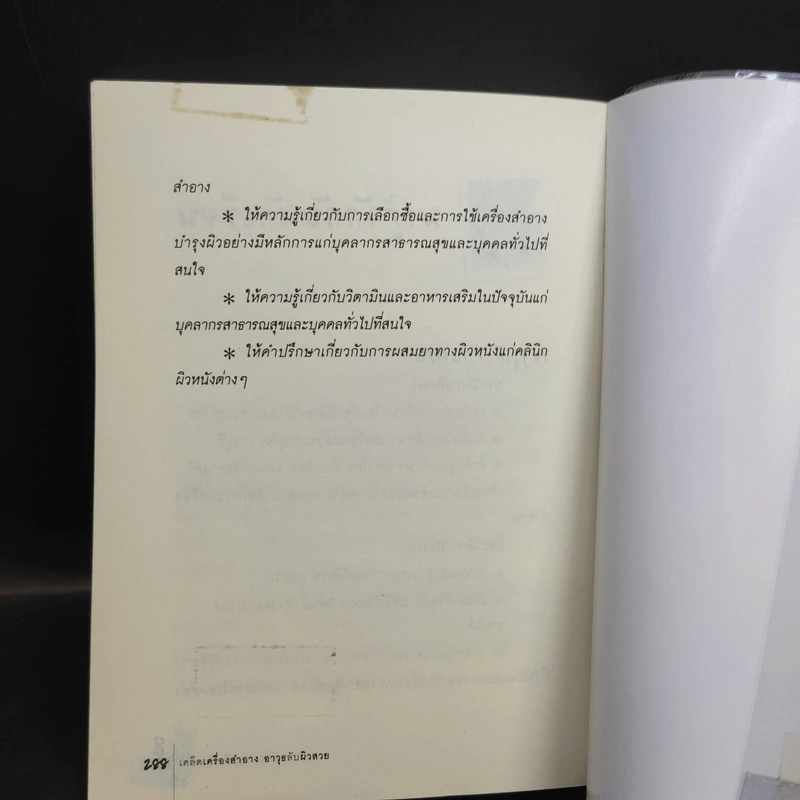 สำอาง
* ให้ความรู้เกี่ยวกับการเลือกซื้อและการใช้เครื่องสำอาง
บำรุงผิวอย่างมีหลักการแก่บุคลากรสาธารณสุขและบุคคลทั่วไปที่
สนใจ
* ให้ความรู้เกี่ยวกับวิตามินและอาหารเสริมในปัจจุบันแก่
บุคลากรสาธารณสุขและบุคคลทั่วไปที่สนใจ
* ให้คำปรึกษาเกี่ยวกับการผสมยาทางผิวหนังแก่คลินิก
ผิวหนังต่างๆ
288 เคล็ดเครื่องสำอาง อาวุธลับผิวสวย